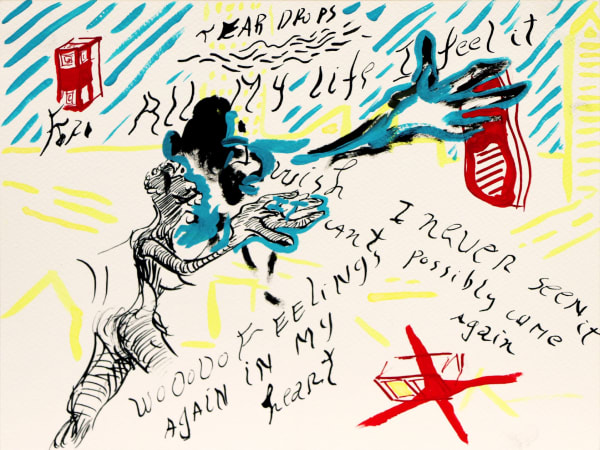 TEAR DROPS
All My Life I feel it
wish
I NEVER SEEN it
cant possibly come
again
WOOODO FEELINGS
AGAIN IN MY
heart